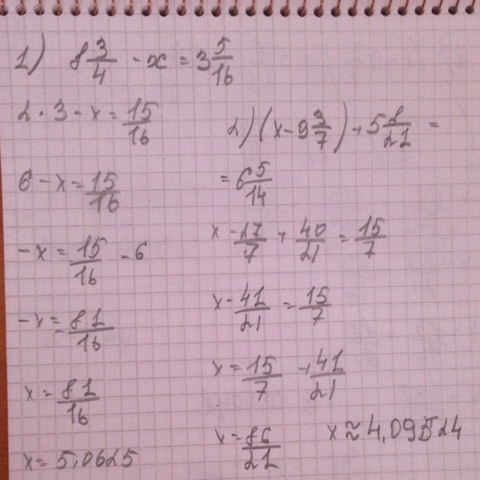 1) 8 3/4 - x = 3 5/16
2 · 3 - x = 15/16
6 - x = 15/16
-x = 15/16 - 6
-x = -81/16
x = 81/16
x = 5,0625
2) (x - 9 3/7) + 5 8/21 =
= 6 5/14
x - 27/7 + 40/21 = 15/7
x - 41/21 = 15/7
x = 15/7 + 41/21
x = 86/21
x ≈ 4,09524